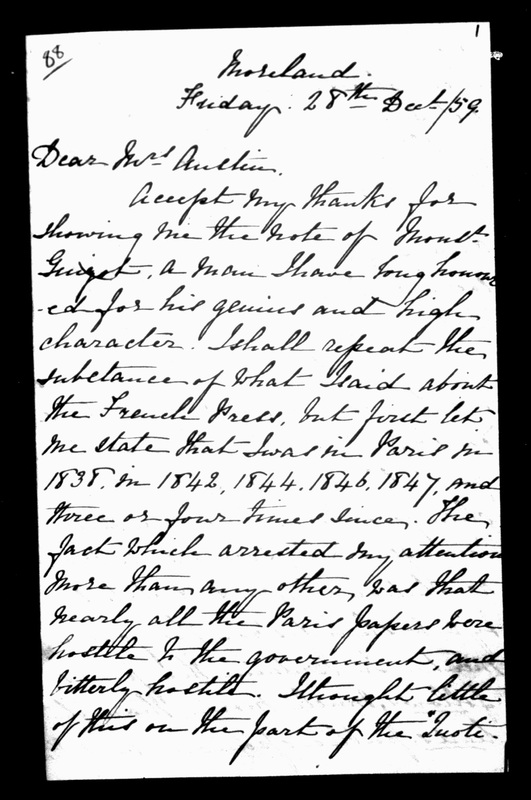 88
1
Moreland.
Friday. 28th Dect/59
Dear Mrs Austin,
Accept my thanks for
showing me the note of Monsr
Guizot, a man I have long honour
-ed for his genius and high
character. I shall repeat the
substance of what I said about
the French Press, but first let
me state that I was in Paris in
1838, in 1842, 1844, 1846, 1847, and
three or four times since. The
fact which arrested my attention
more than any other, was that
nearly all the Paris papers were
hostile to the government, and
bitterly hostile. I thought little
of this on the part of the "Quoti-